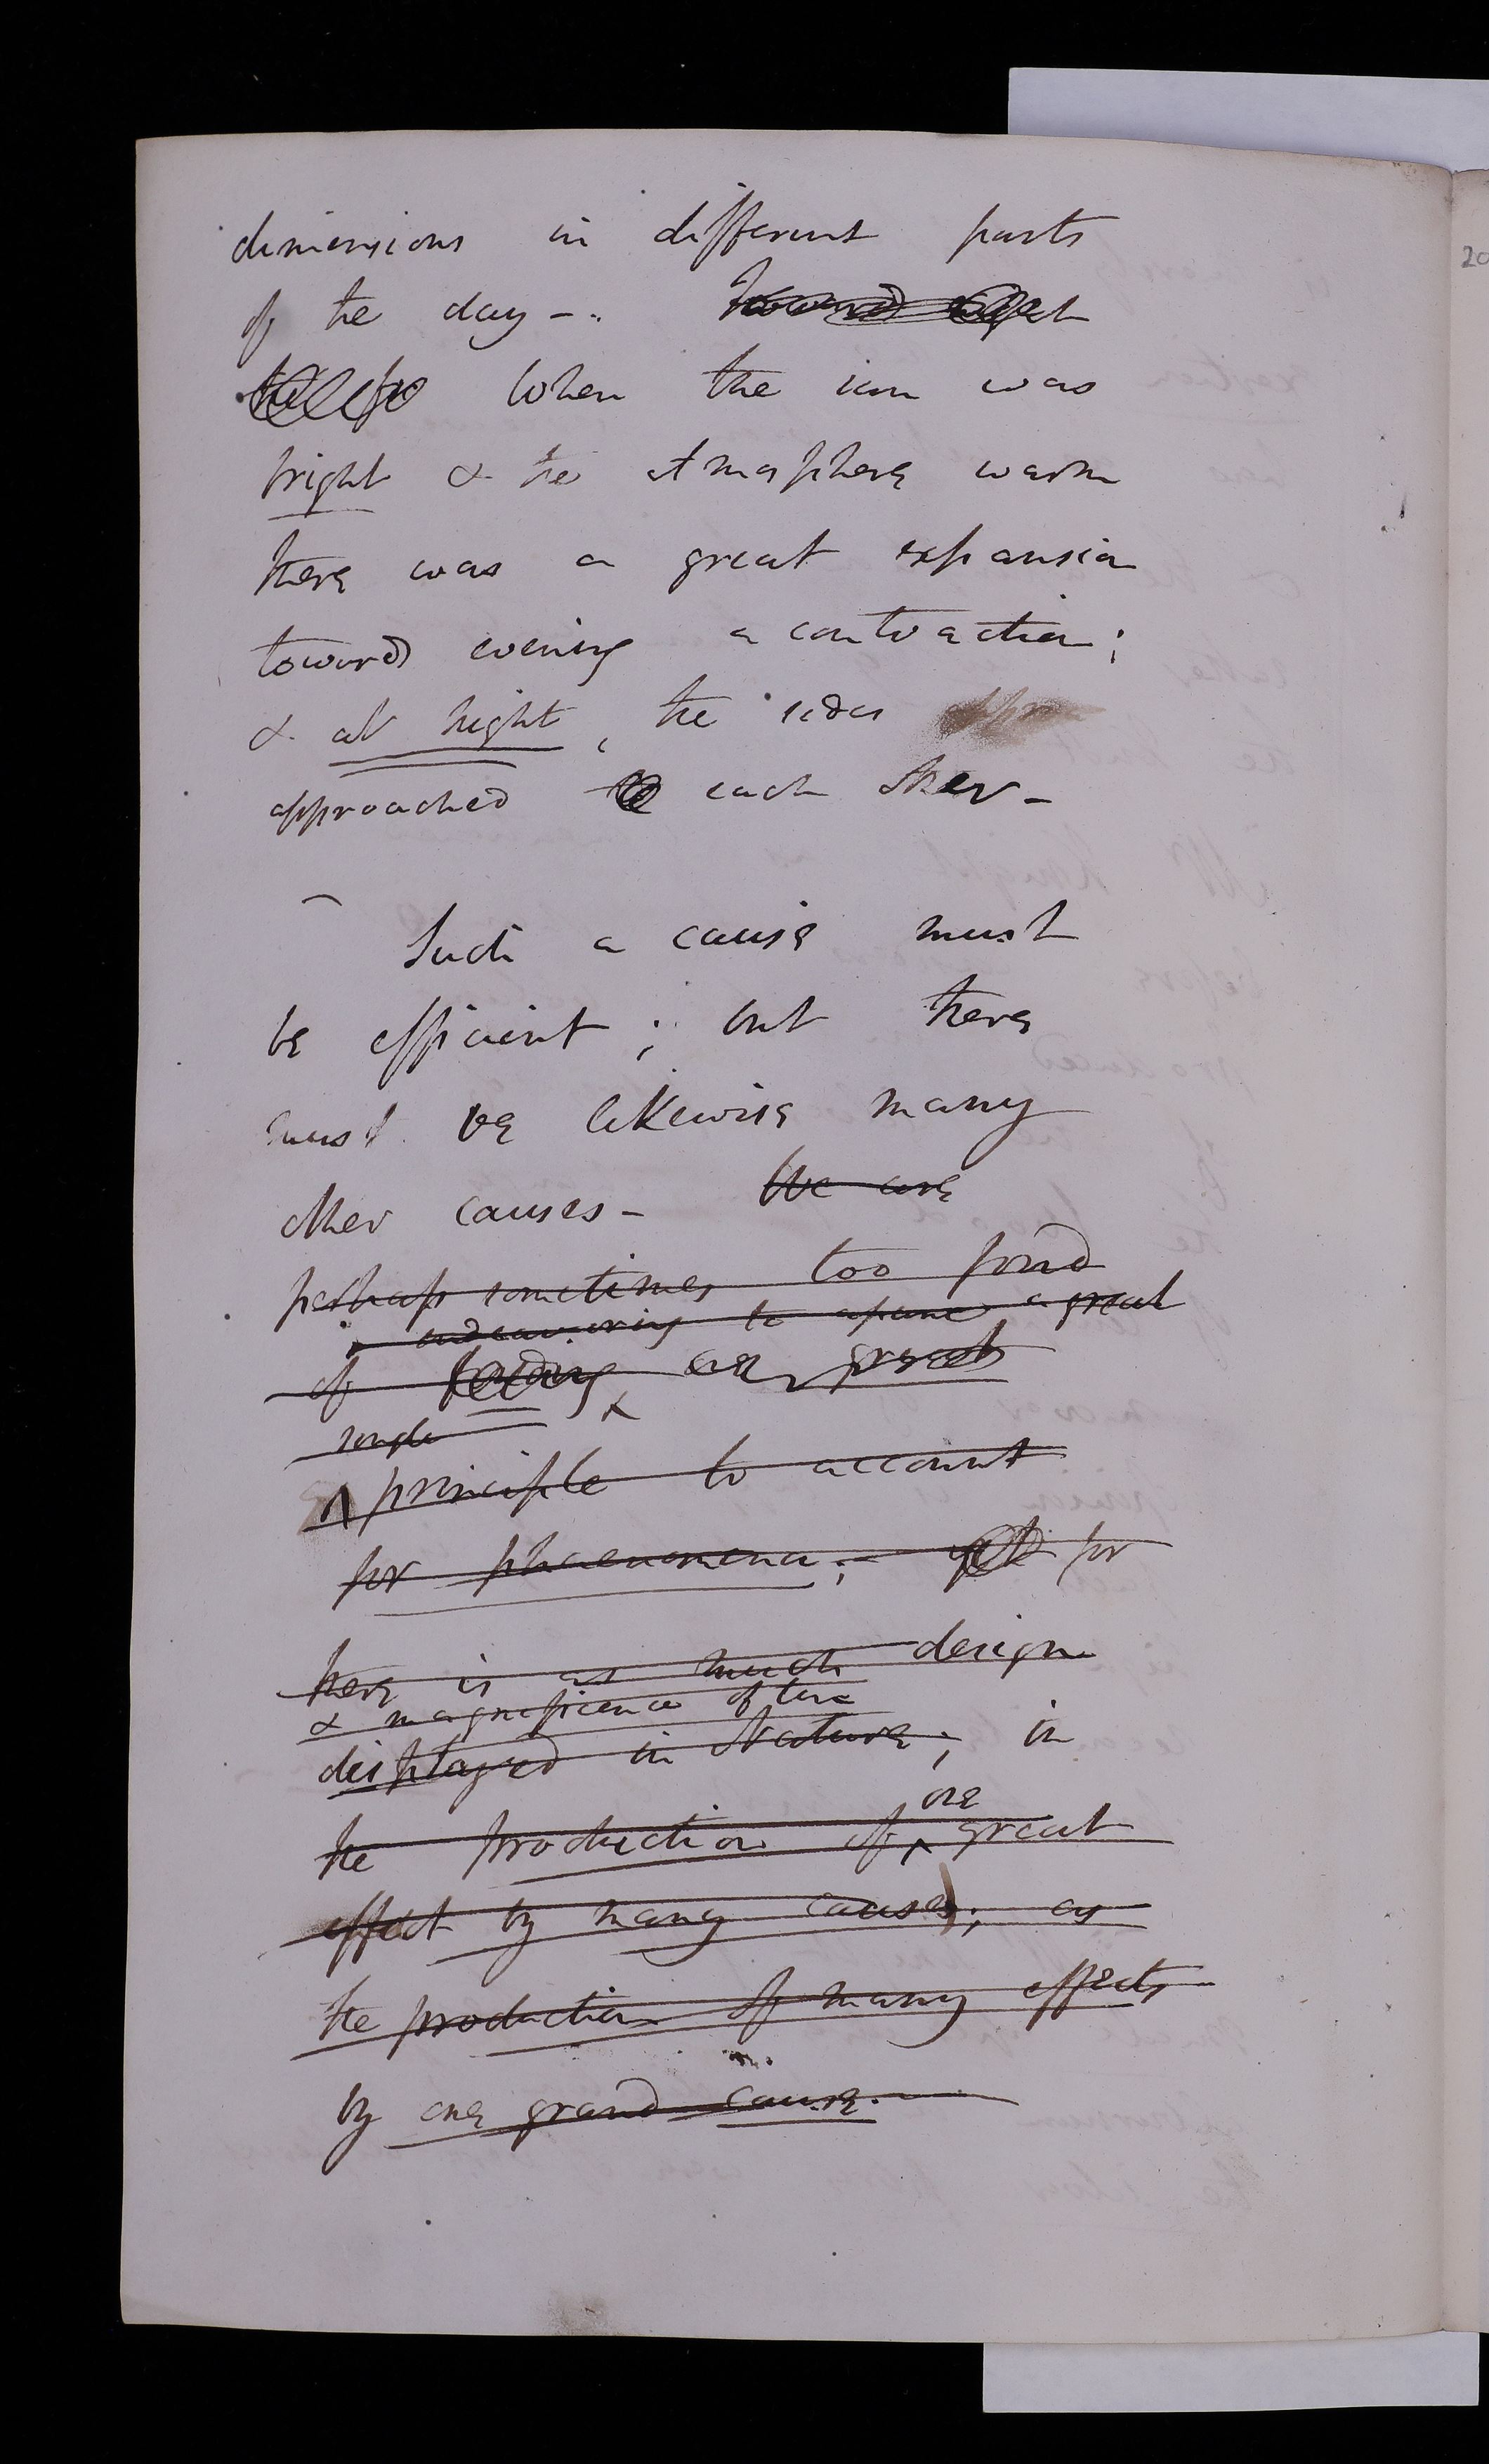 dimensions in different parts
of the day -.
When the sun was
bright & the atmosphere warm
there was a great expansion
toward evening a contraction;
& at night, the sides
approached each other -
Such a cause must
be efficient; but there
must be likewise many
other causes - We are
perhaps sometimes too fond
endeavoring to a great
of one great
single
principle to account
for phaenomena; - for
there is as much design
& magnificence often
displayed in Nature; in
one
the production of great
effect by many causes; as
the production of many effects
by one grand cause. -
20